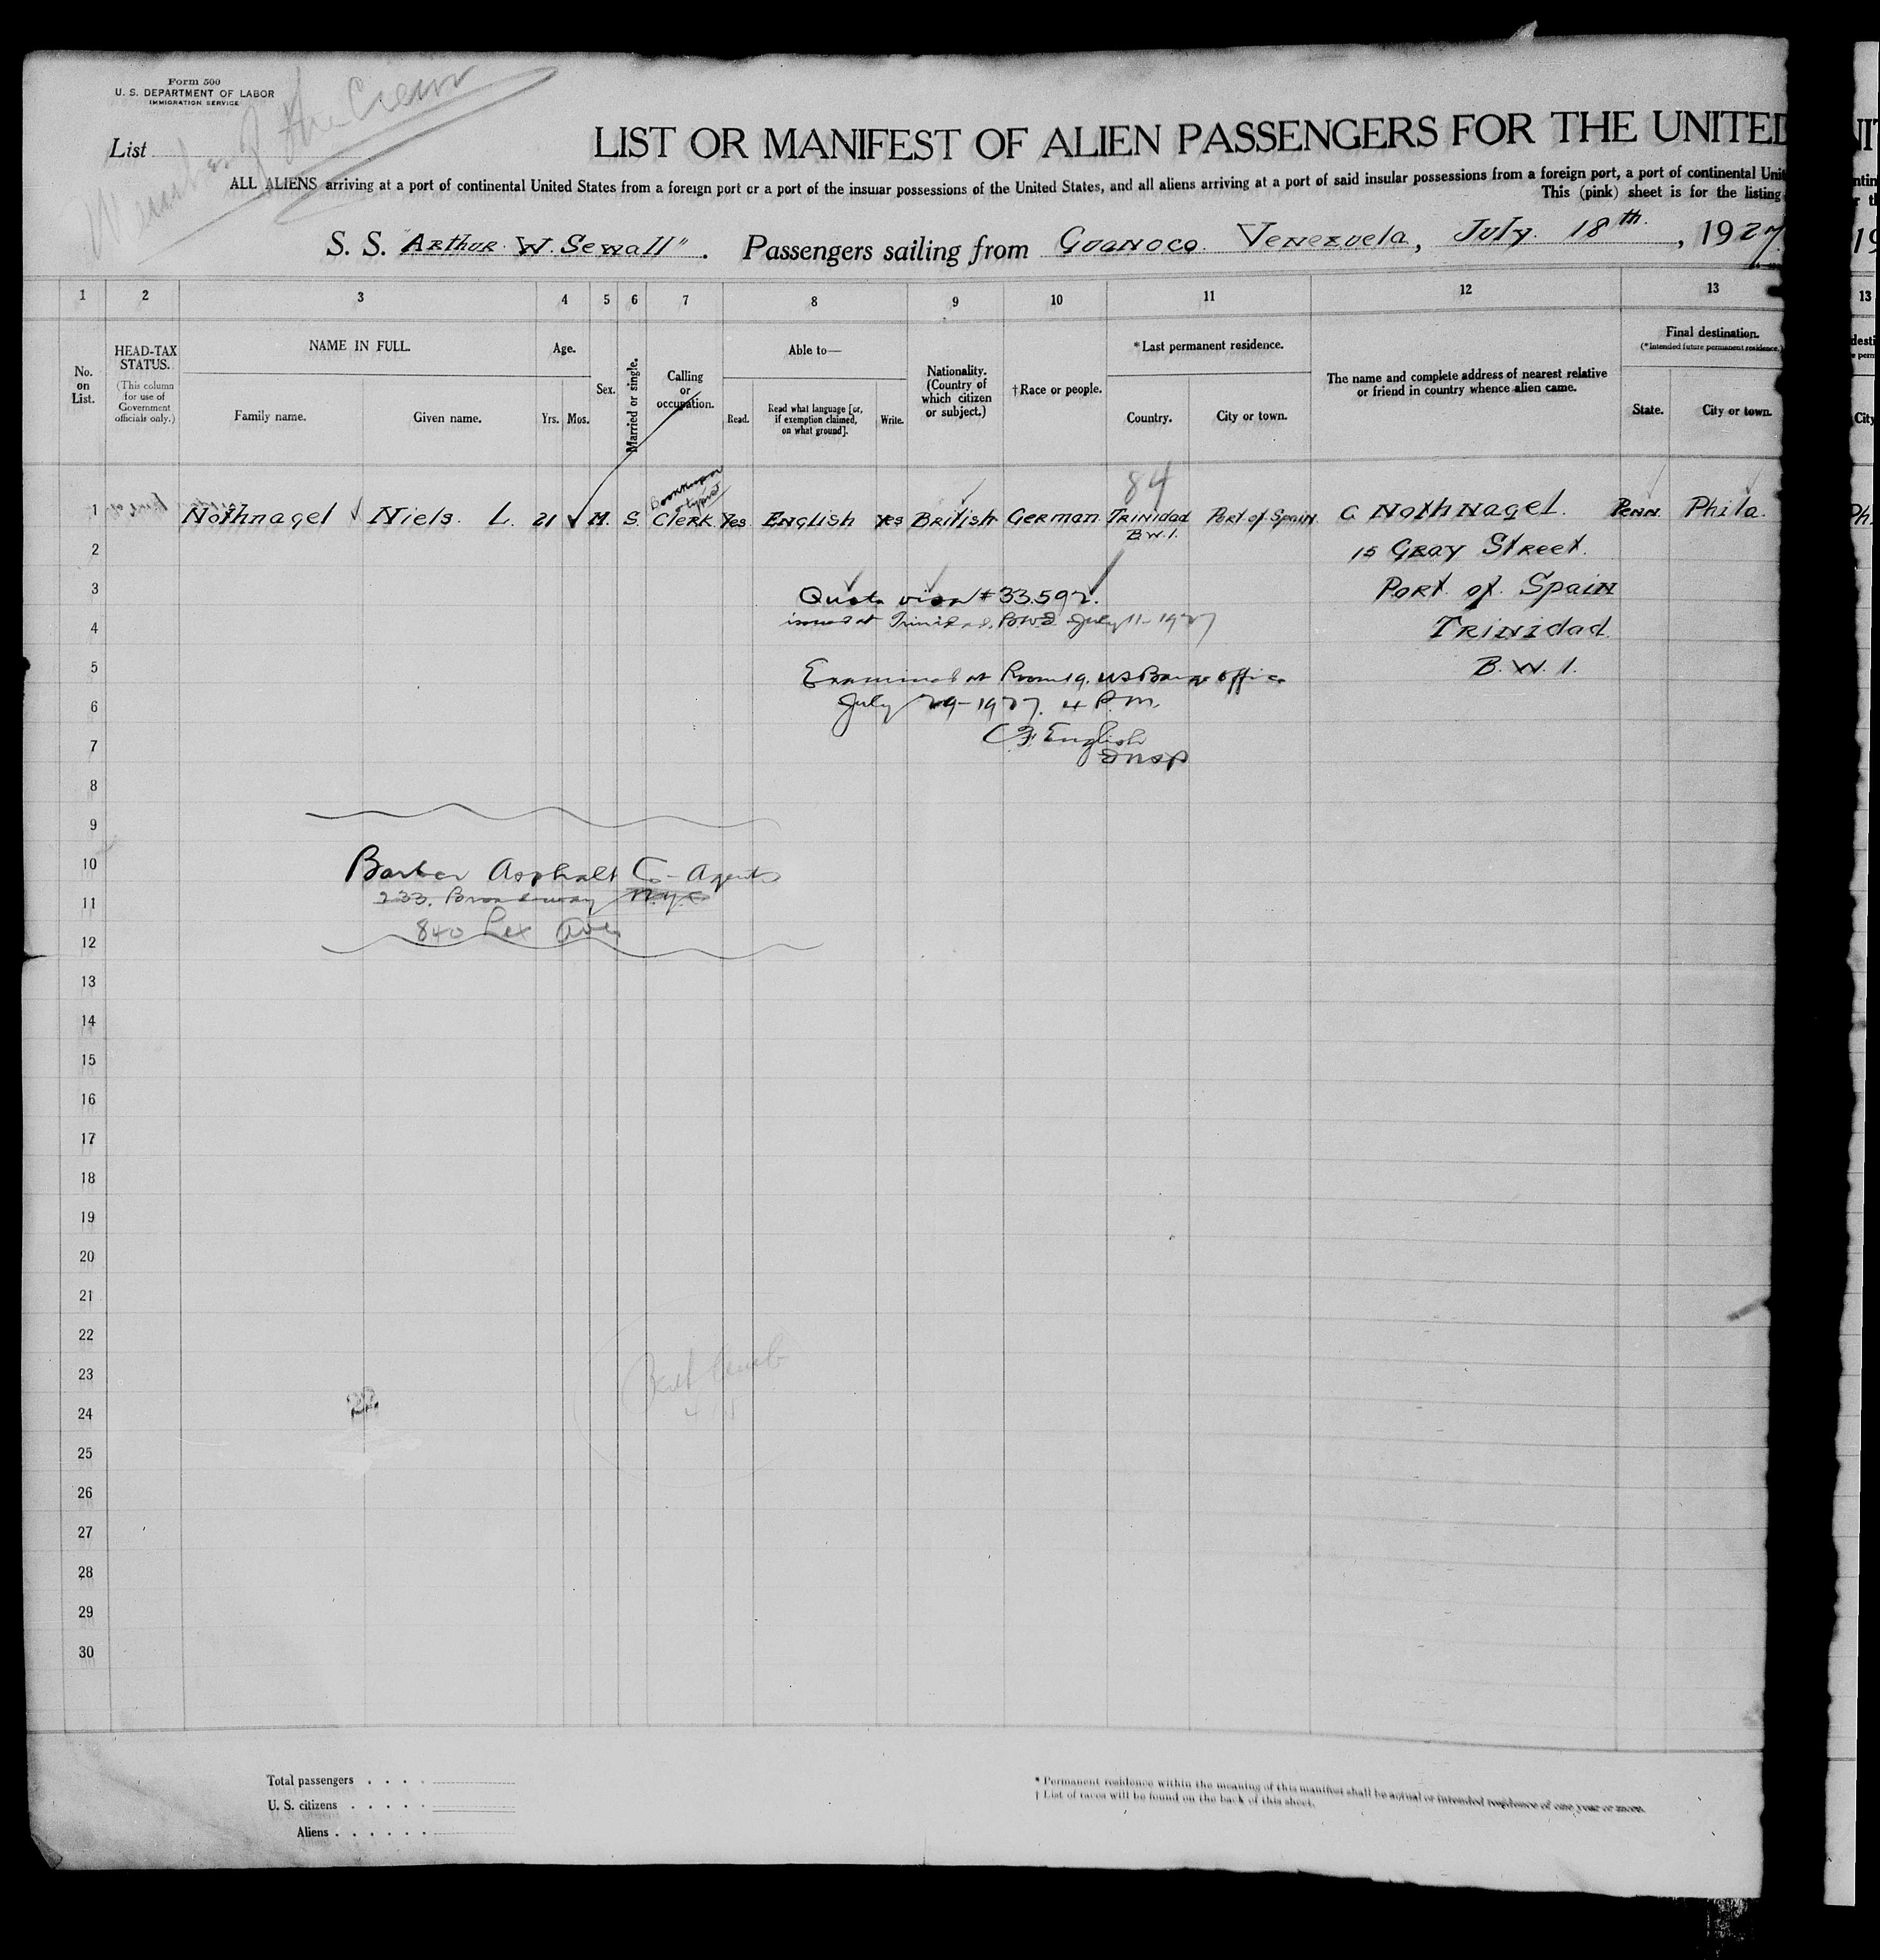 Form 500
U. S. DEPARTMENT OF LABOR
IMMIGRATION SERVICE
Member of the Crew
List
LIST OR MANIFEST OF ALIEN PASSENGERS FOR THE UNITED
ALL ALIENS arriving at a port of continental United States from a foreign port or a port of the insular possessions of the United States, and all aliens arriving at a port of said insular possessions from a foreign port, a port of continental Unit
This (pink) sheet is for the listing
S. S. "Arthur W. Sewall". Passengers sailing from Guanoco Venezuela, July 18th, 1927
1 2 3 4 5 6 7 8 9 10 11 12 13
No. on List.
HEAD-TAX STATUS.
(This column for use of Government officials only.)
NAME IN FULL.
Family name. Given name.
Age.
Yrs. Mos.
Sex.
Married or single.
Calling or occupation.
Able to—
Read. Read what language [or, if exemption claimed, on what ground]. Write.
Nationality. (Country of which citizen or subject.)
†Race or people.
*Last permanent residence.
Country. City or town.
The name and complete address of nearest relative or friend in country whence alien came.
Final destination.
(*Intended future permanent residence.)
State. City or town.
84
Bookkeeper
typist
1 Nothnagel Niels. L. 21 M. S. Clerk. Yes English Yes British German Trinidad Port of Spain C Nothnagel. Penn. Phila.
B.W.I.
2 15 Gray Street.
3 Quota visa #33592. Port of Spain
4 issued at Trinidad, B.W.I. July 11-1927 Trinidad
5 Examined at Room 19, US Barge Office B.W.I.
6 July 29-1927. 4 P.M.
7 C F English
Insp
8
9
10 Barber Asphalt Co- Agents
11 233. Broadway N.Y.C
840 Lex Ave
12
13
14
15
16
17
18
19
20
21
22
23
24
25
26
27
28
29
30
Total passengers . . . .
U. S. citizens . . . . .
Aliens . . . . . .
* Permanent residence within the meaning of this manifest shall be actual or intended residence of one year or more.
† List of races will be found on the back of this sheet.